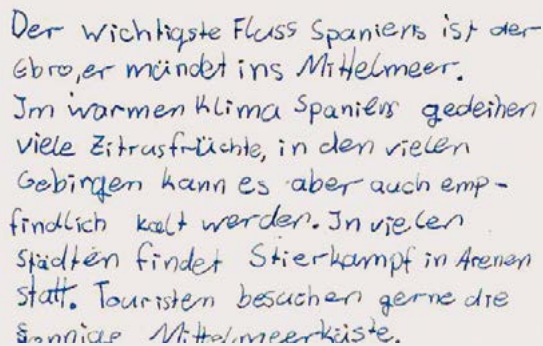 Der wichtigste Fluss Spaniens ist der
Ebro, er mündet ins Mittelmeer.
Im warmen Klima Spaniens gedeihen
viele Zitrusfrüchte, in den vielen
Gebirgen kann es aber auch emp-
findlich kalt werden. In vielen
Städten findet Stierkampf in Arenen
statt. Touristen besuchen gerne die
sonnige Mittelmeerküste.